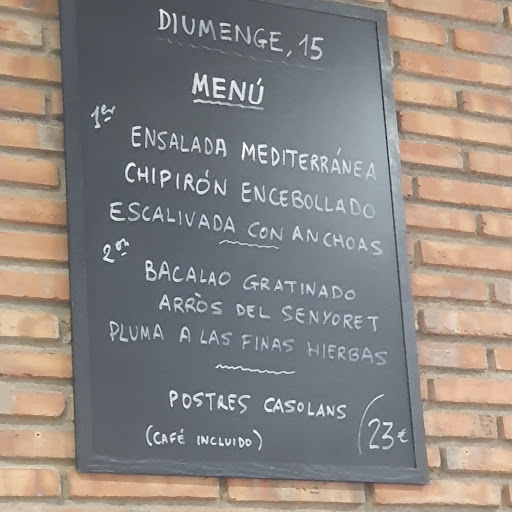 DIUMENGE, 15
MENÚ
1er
ENSALADA MEDITERRÁNEA
CHIPIRÓN ENCEBOLLADO
ESCALIVADA CON ANCHOAS
2on
BACALAO GRATINADO
ARRÒS DEL SENYORET
PLUMA A LAS FINAS HIERBAS
POSTRES CASOLANS
(CAFÉ INCLUIDO)
23€